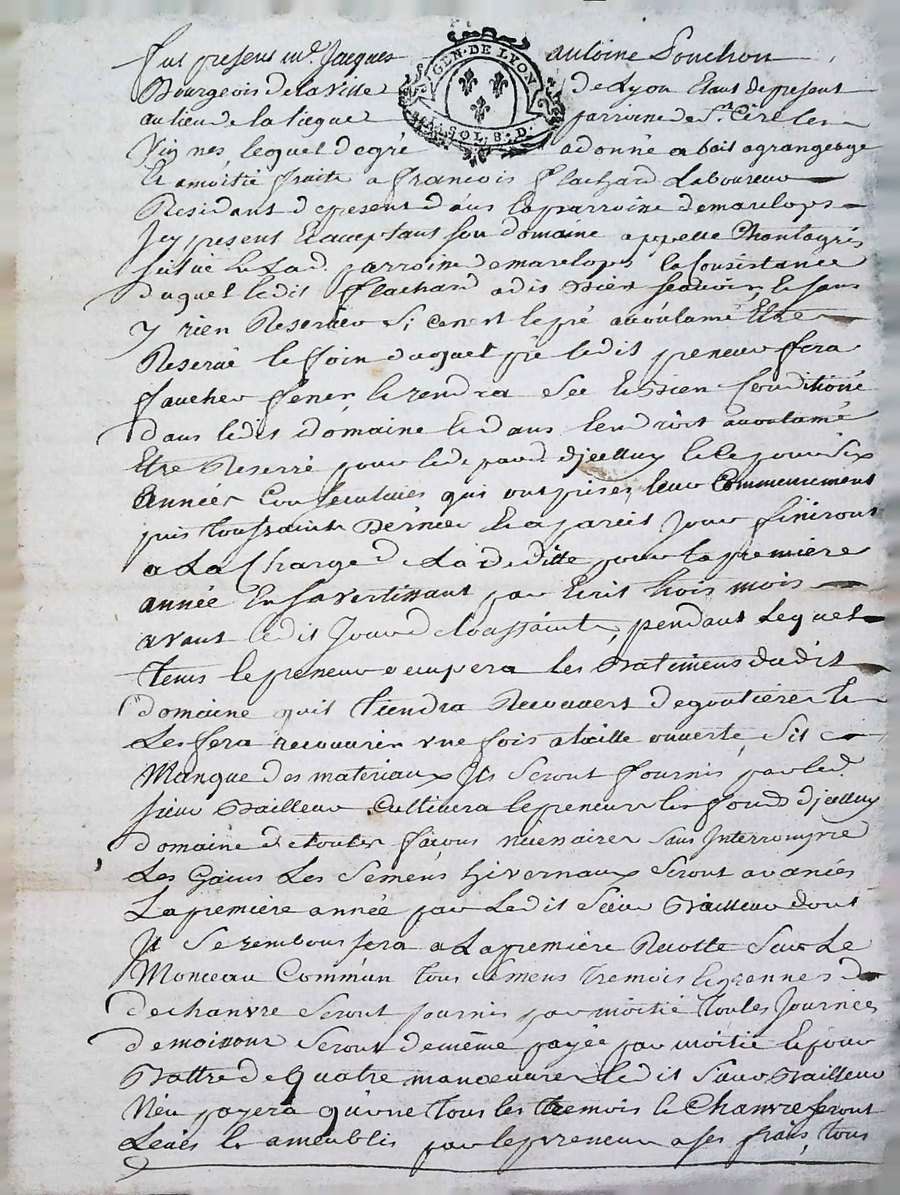 Fut present mr. Jacques antoine Souchon
GEN · DE LYON
SOL. 8. D.
Bourgeois de la Ville de Lyon Etant de present
au lieu de la parroisse de St. Cire les
Vignes, lequel de gré a donné a bait a grangeage
Et amoitié fruits a francois flachard Laboureur
Residant de present dans la parroisse de mareloges
Jcy present Et acceptant son domaine appellé
situé En lad. parroisse de mareloges la Consistance
duquel ledit flachard a dit bien scavoir Et sans
y rien Reserver Si cenest le pré Etre
Reservé le foin duquel pré ledit preneur fera
faucher fener Et rendra Sec Et bien Conditioné
dans ledit domaine Et dans lendroit
Etre Reservé pour led. pour Six
année Consecutives qui ont prises leur Commencement
puis toussaint Derniere Et a pareil Jour finiront
a La Charge de La deditte pour la premiere
année En savertissant par Ecrit trois mois
avant ledit Jour de toussaint, pendant Lequel
tems le preneur occupera les Batimens dudit
domaine quil tiendra Recouvert de goutiere Et
Les fera recouvrir une fois a taille ouverte, Sil
Manque des materiaux Ils Seront fournis par led.
sieur Bailleur Cultivera le preneur les fonds
domaine de toutes facons necessaires sans Interrompre
Les Gains Les Semens hivernaux Seront avancés
La premiere année par Ledit Sieur Bailleur dont
Il Se remboursera a La premiere Recolte Sur Le
Monceau Commun tous Semens tremois Et grennes de
de chanvre Seront fournis par moitié toutes Journée
de moissons Seront de même payée par moitié Et pour
Battre de quatre manœuvres ledit Sieur Bailleur
N'en payera qu'une tous les tremois Et Chanvre seront
Levés Et ameublis par le preneur a ses frais, tous